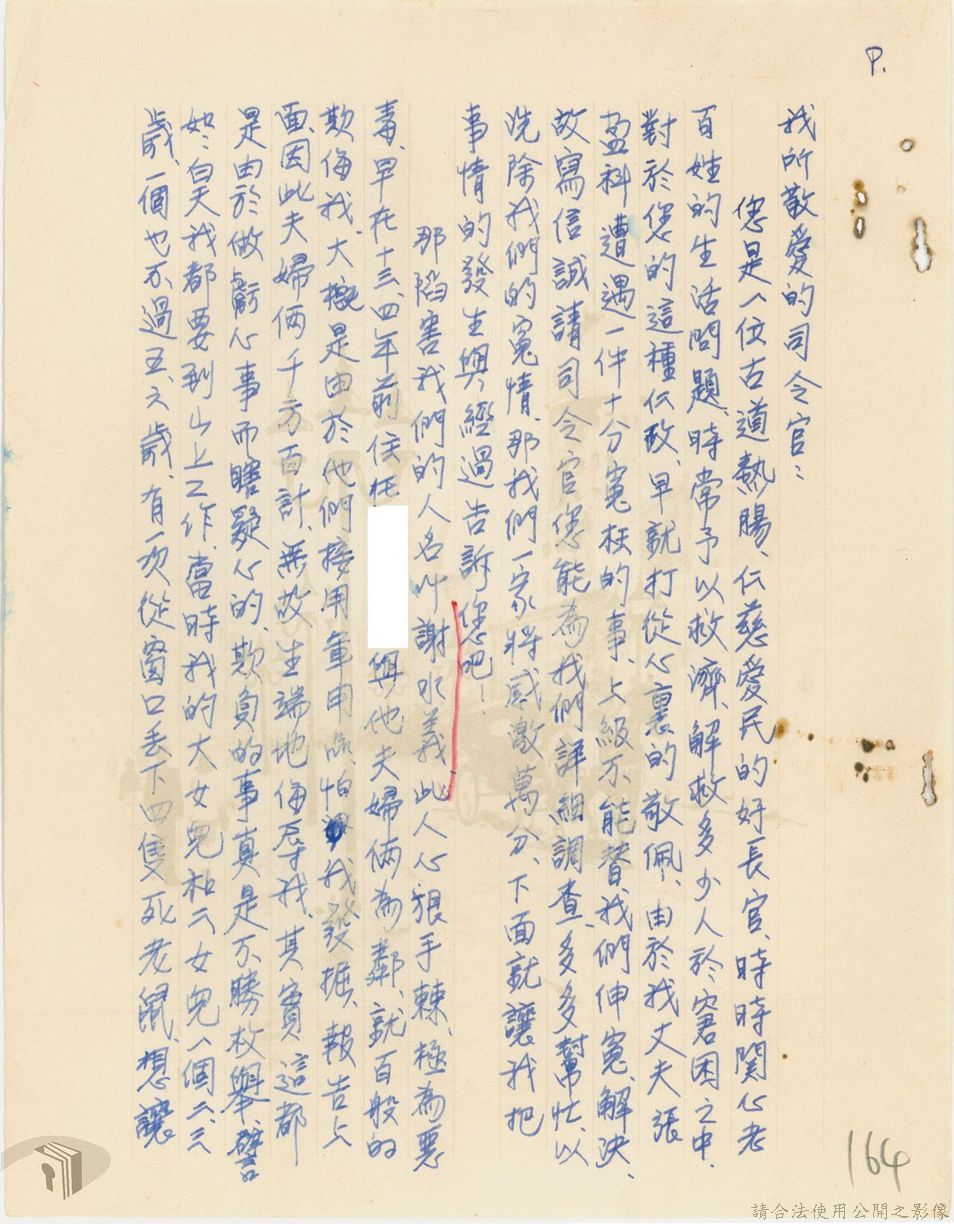 P.
我所敬愛的司令官：
您是一位古道熱腸、仁慈愛民的好長官、時時関心老
百姓的生活問題、時常予以救濟、解救多少人於窘困之中、
對於您的這種仁政、早就打從心裏的敬佩、由於我丈夫張
盈科遭遇一件十分冤枉的事、上級不能替我們伸冤、解決、
故寫信誠請司令官您能為我們詳細調查、多多幫忙、以
洗除我們的冤情、那我們一家將感激萬分、下面就讓我把
事情的發生與經過告訴您吧！
那陷害我們的人名叫謝水義此人心狠手棘、極為惡
毒、早在十三、四年前住在
與他夫婦俩為鄰、就百般的
欺侮我、大概是由於他們接用軍用
怕
我發掘、報告上
面、因此夫婦俩千方百計、無故生端地侮辱我、其實這都
是由於做虧心事而瞎疑心的、欺負的事真是不勝枚舉、譬
如、白天我都要到山上工作、當時我的大女兒和二女兒一個二、三
歲、一個也不過五、六歲、有一次從窗口丢下四隻死老鼠、想讓
164
請合法使用公開之影像